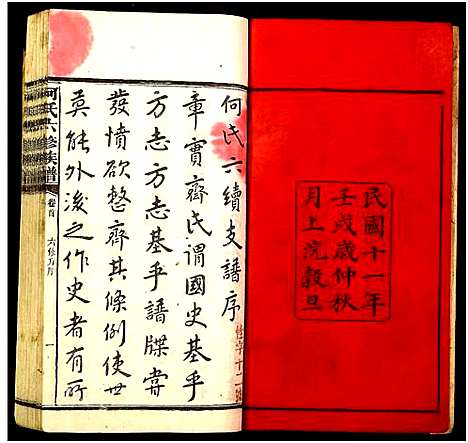 民國十一年
壬戌歲仲秋
月上浣穀旦
何氏六續支譜序
章實齋氏謂國史基乎
方志方志基乎譜牒嘗
發憤欲整齊其條例使世
莫能外後之作史者有所
何氏六修族譜
卷首
六修序
一